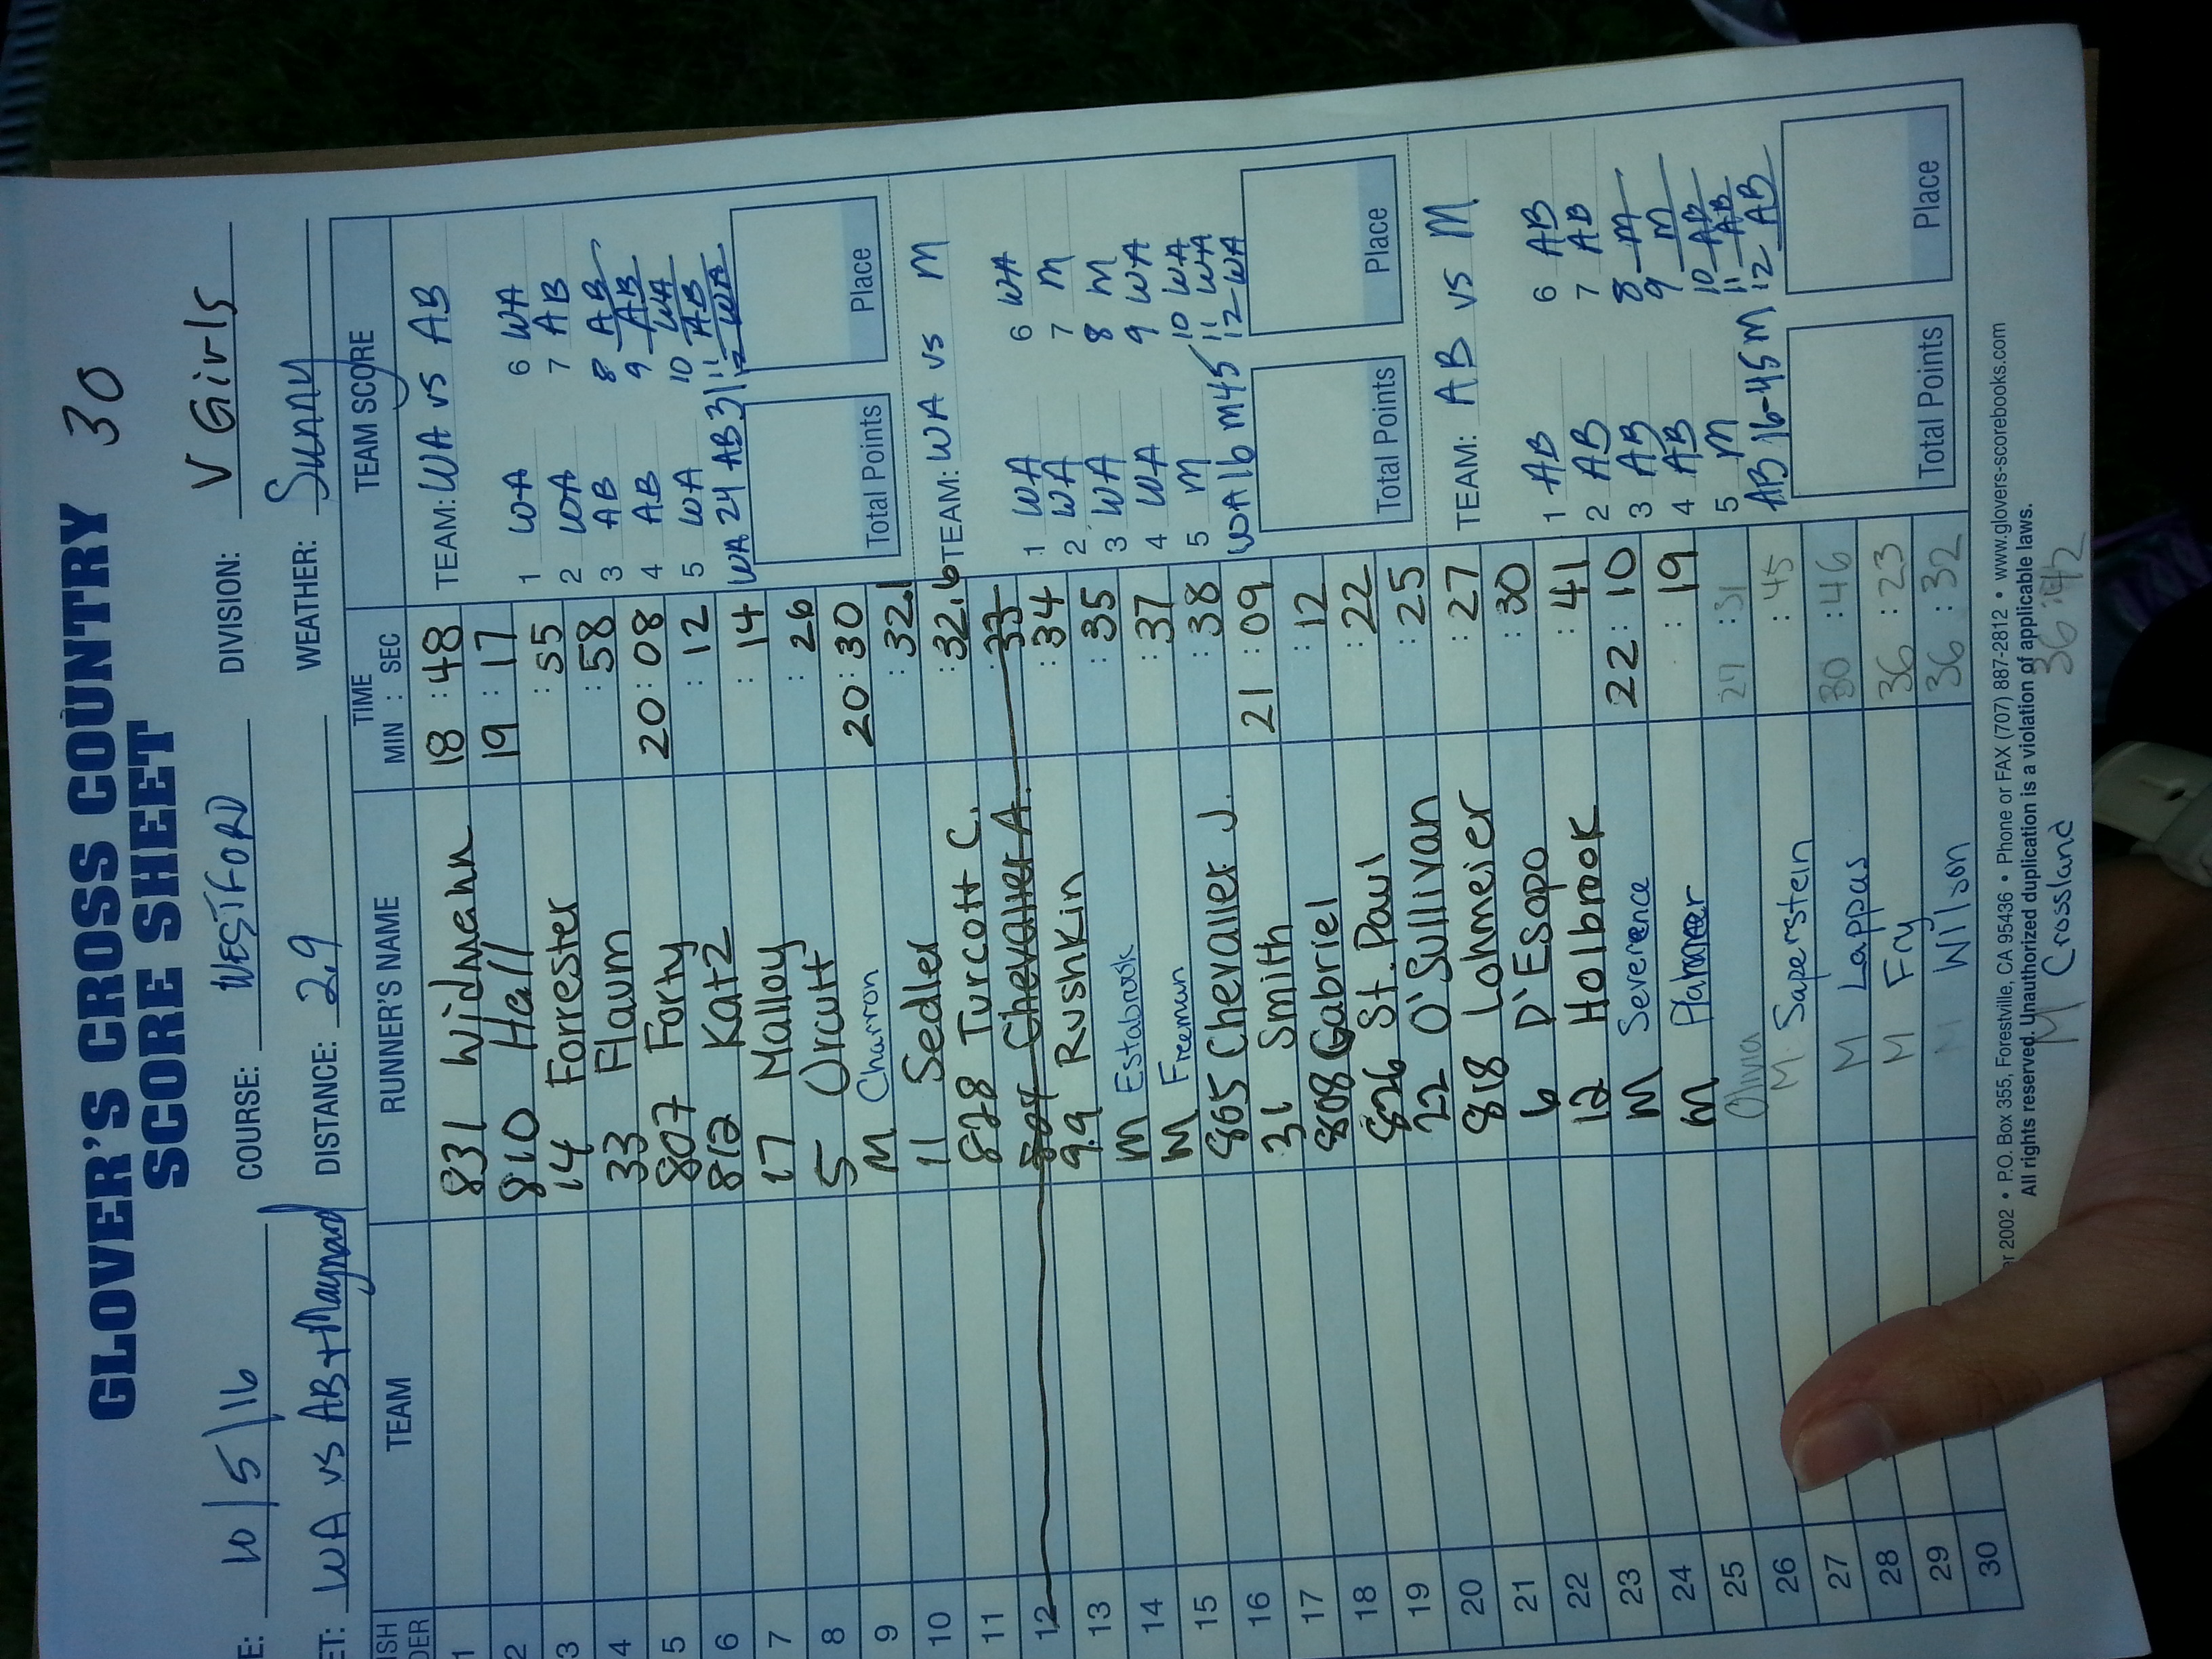 GLOVER'S CROSS COUNTRY 30
SCORE SHEET
E: 10/5/16 COURSE: WESTFORD DIVISION: V Girls
ET: WA vs AB + Maynard DISTANCE: 2.9 WEATHER: Sunny
ISH DER TEAM RUNNER'S NAME TIME MIN : SEC TEAM SCORE
1 831 Widmann 18 :48
2 810 Hall 19 : 17
3 14 Forrester : 55
4 33 Flaum :58
5 807 Forty 20:08
6 812 Katz : 12
7 17 Malloy : 14
8 5 Orcutt : 26
9 M Charron 20:30
10 11 Sedler :32.1
11 828 Turcott C. :32.6
12 804 Chevalier A. :33
13 99 Rushkin :34
14 M Estabrook :35
15 M Freeman :37
16 805 Chevalier J. :38
17 31 Smith 21 :09
18 808 Gabriel :12
19 826 St. Paul :22
20 22 O'Sullivan :25
21 818 Lohmeier :27
22 6 D'Esopo :30
23 12 Holbrook :41
24 M Severence 22:10
25 M :19
26 Olivia 27 :31
27 M Saperstein :45
28 M Lappas 30 :46
29 M Fry 36 :23
30 M Wilson 36 :32
TEAM: WA vs AB
1 WA 6 WA
2 WA 7 AB
3 AB 8 AB
4 AB 9 AB
5 WA 10 WA
WA 24 AB 31 11 AB
12 WA
Total Points Place
TEAM: WA vs M
1 WA 6 WA
2 WA 7 M
3 WA 8 M
4 WA 9 WA
5 M 10 WA
WA 16 M45 11 WA
12 WA
Total Points Place
TEAM: AB vs M
1 AB 6 AB
2 AB 7 AB
3 AB 8 M
4 AB 9 M
5 M 10 AB
11 AB
AB 16-45 M 12 AB
Total Points Place
er 2002 • P.O. Box 355, Forestville, CA 95436 • Phone or FAX (707) 887-2812 • www.glovers-scorebooks.com
All rights reserved. Unauthorized duplication is a violation of applicable laws.
M Crossland 36:42